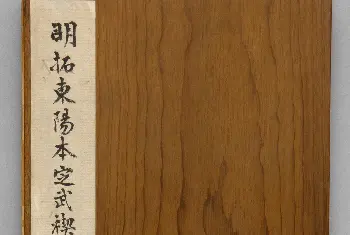 明拓東陽本定武禊